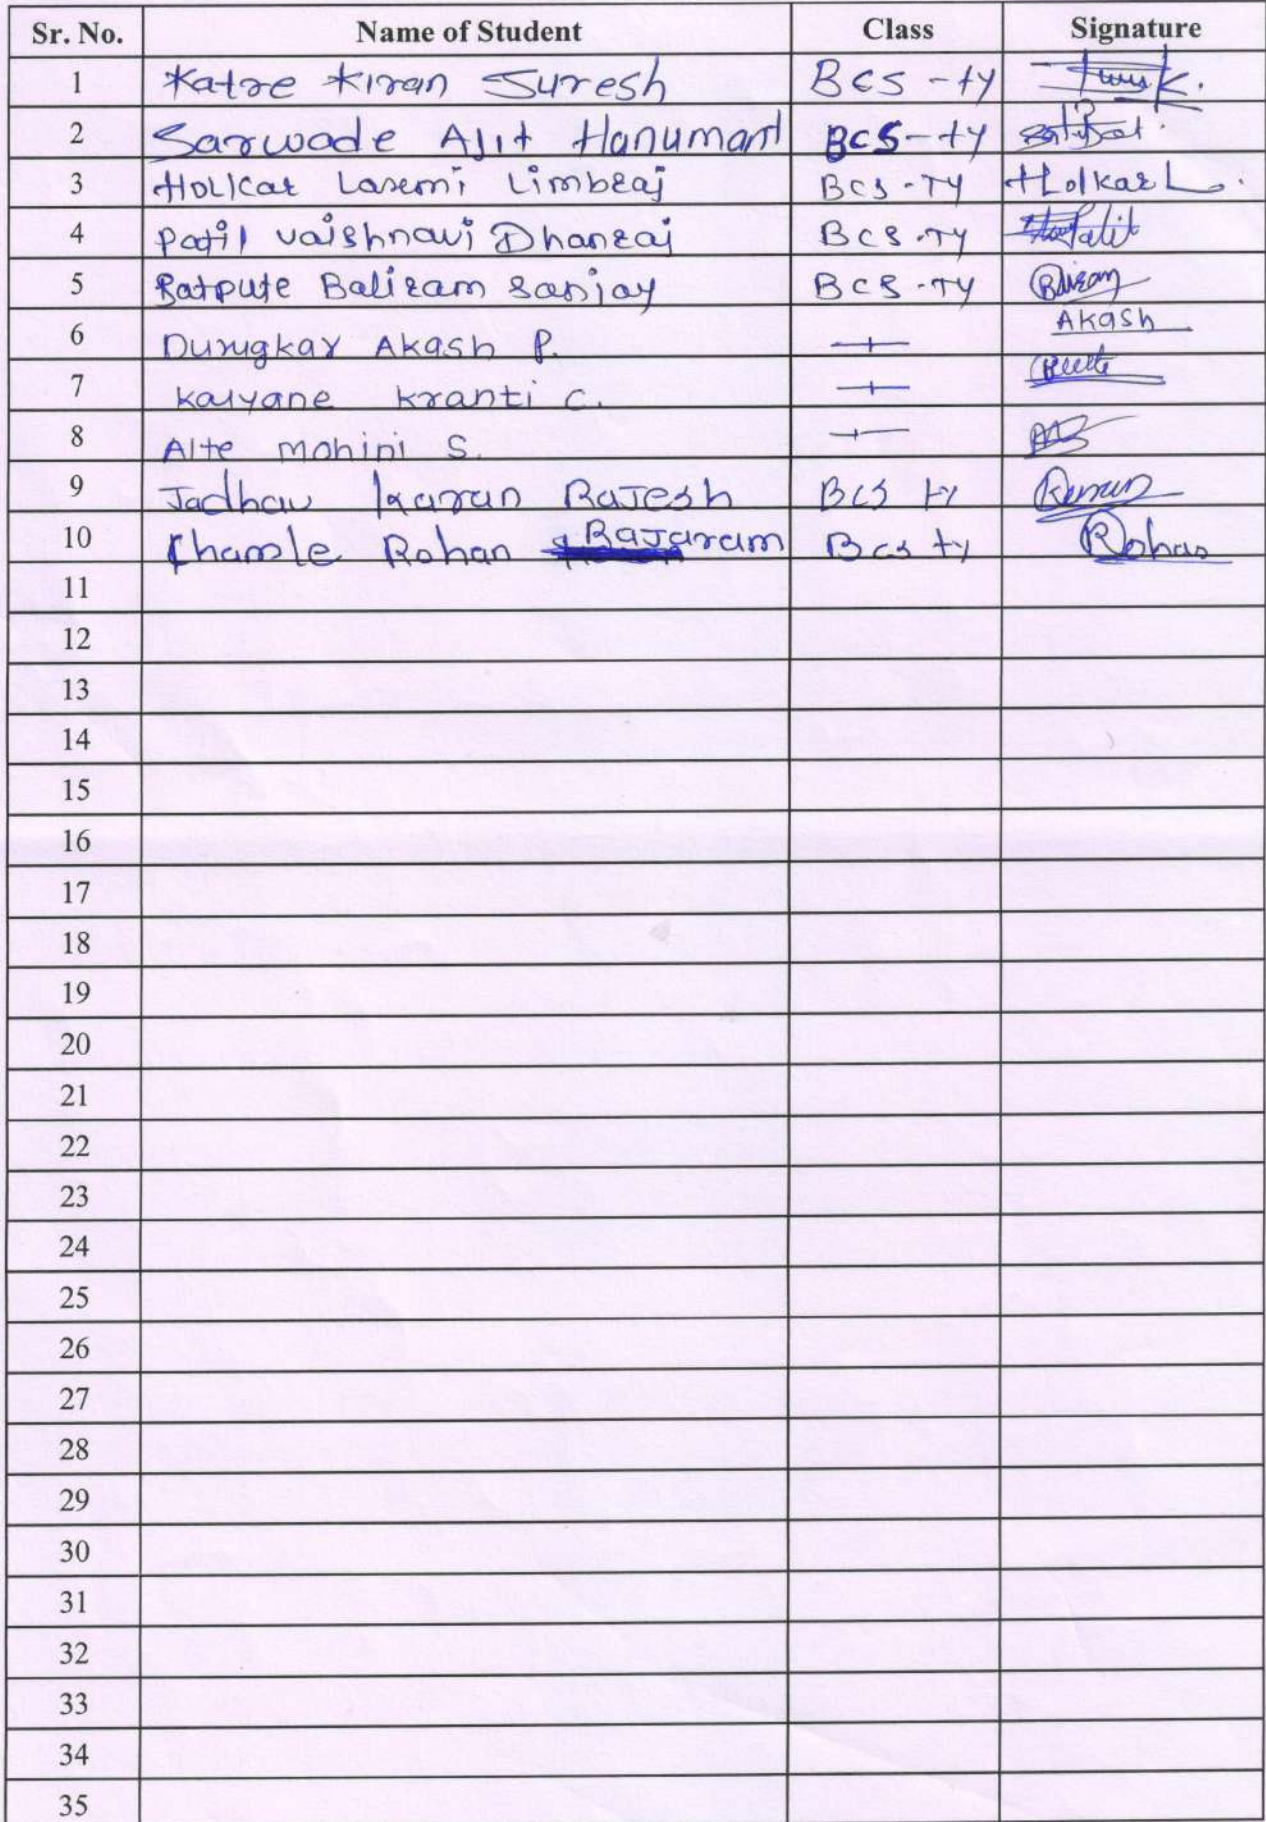 Sr. No. Name of Student Class Signature
1 Katre Kiran Suresh BCS - ty
2 Sarwade Ajit Hanumant BCS - ty
3 Holkar Laxmi Limbraj BCS - TY Holkar L.
4 Patil Vaishnavi Dhanraj BCS - TY Patil
5 Satpute Baliram Sanjay BCS - TY Baliram
6 Durugkar Akash P. Akash
7 Kalyane Kranti C.
8 Alte Mohini S.
9 Jadhav Karan Rajesh BCS ty Karan
10 Chamle Rohan Rajaram Bcs ty Rohan
11
12
13
14
15
16
17
18
19
20
21
22
23
24
25
26
27
28
29
30
31
32
33
34
35